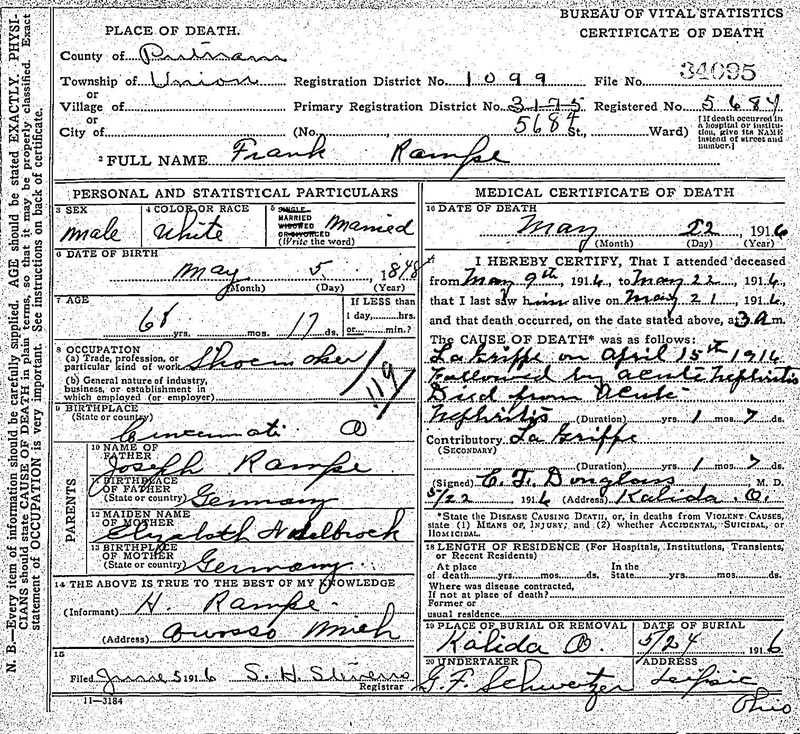 BUREAU OF VITAL STATISTICS
CERTIFICATE OF DEATH
PLACE OF DEATH.
County of Putnam
Township of Union Registration District No. 1099 File No. 34095
or
Village of Primary Registration District No. 3175 Registered No. 5684
or
City of (No. , 5684 St., Ward)
[If death occurred in a hospital or institution, give its NAME instead of street and number.]
2 FULL NAME Frank Rampe
PERSONAL AND STATISTICAL PARTICULARS
3 SEX 4 COLOR OR RACE 5 SINGLE MARRIED WIDOWED OR DIVORCED (Write the word)
male White Married
6 DATE OF BIRTH
May 5 1848
(Month) (Day) (Year)
7 AGE If LESS than
68 yrs. mos. 17 ds. 1 day,....hrs. or....min.?
8 OCCUPATION
(a) Trade, profession, or particular kind of work Shoemaker
(b) General nature of industry, business, or establishment in which employed (or employer)
119
9 BIRTHPLACE
(State or country)
Cincinnati O
PARENTS
10 NAME OF FATHER
Joseph Rampe
11 BIRTHPLACE OF FATHER
(State or country) Germany
12 MAIDEN NAME OF MOTHER
13 BIRTHPLACE OF MOTHER
(State or country) Germany
14 THE ABOVE IS TRUE TO THE BEST OF MY KNOWLEDGE
(Informant) H. Rampe
(Address) Owosso Mich
15
Filed June 5 1916 S. H. Stevens
Registrar
11—3184
MEDICAL CERTIFICATE OF DEATH
16 DATE OF DEATH
May 22 1916
(Month) (Day) (Year)
17 I HEREBY CERTIFY, That I attended deceased
from May 9th, 1916, to May 22, 1916,
that I last saw him alive on May 21, 1916,
and that death occurred, on the date stated above, at 3 a m.
The CAUSE OF DEATH* was as follows:
La Grippe on April 15th 1916
Followed by acute Nephritis
Died from Acute
Nephritis (Duration) yrs. 1 mos. 7 ds.
Contributory La Grippe
(SECONDARY)
(Duration) yrs. 1 mos. 7 ds.
(Signed) C. T. Douglass M. D.
5/22, 1916 (Address) Kalida O.
*State the DISEASE CAUSING DEATH, or, in deaths from VIOLENT CAUSES, state (1) MEANS OF INJURY; and (2) whether ACCIDENTAL, SUICIDAL, or HOMICIDAL.
18 LENGTH OF RESIDENCE (For Hospitals, Institutions, Transients, or Recent Residents)
At place of death....yrs....mos....ds. In the State....yrs....mos....ds.
Where was disease contracted,
If not at place of death?
Former or
usual residence
19 PLACE OF BURIAL OR REMOVAL DATE OF BURIAL
Kalida O. 5/24 1916
20 UNDERTAKER ADDRESS
G. F. Schweitzer Leipsic
Ohio
N. B.—Every item of information should be carefully supplied. AGE should be stated EXACTLY. PHYSI-
CIANS should state CAUSE OF DEATH in plain terms, so that it may be properly classified. Exact
statement of OCCUPATION is very important. See instructions on back of certificate.